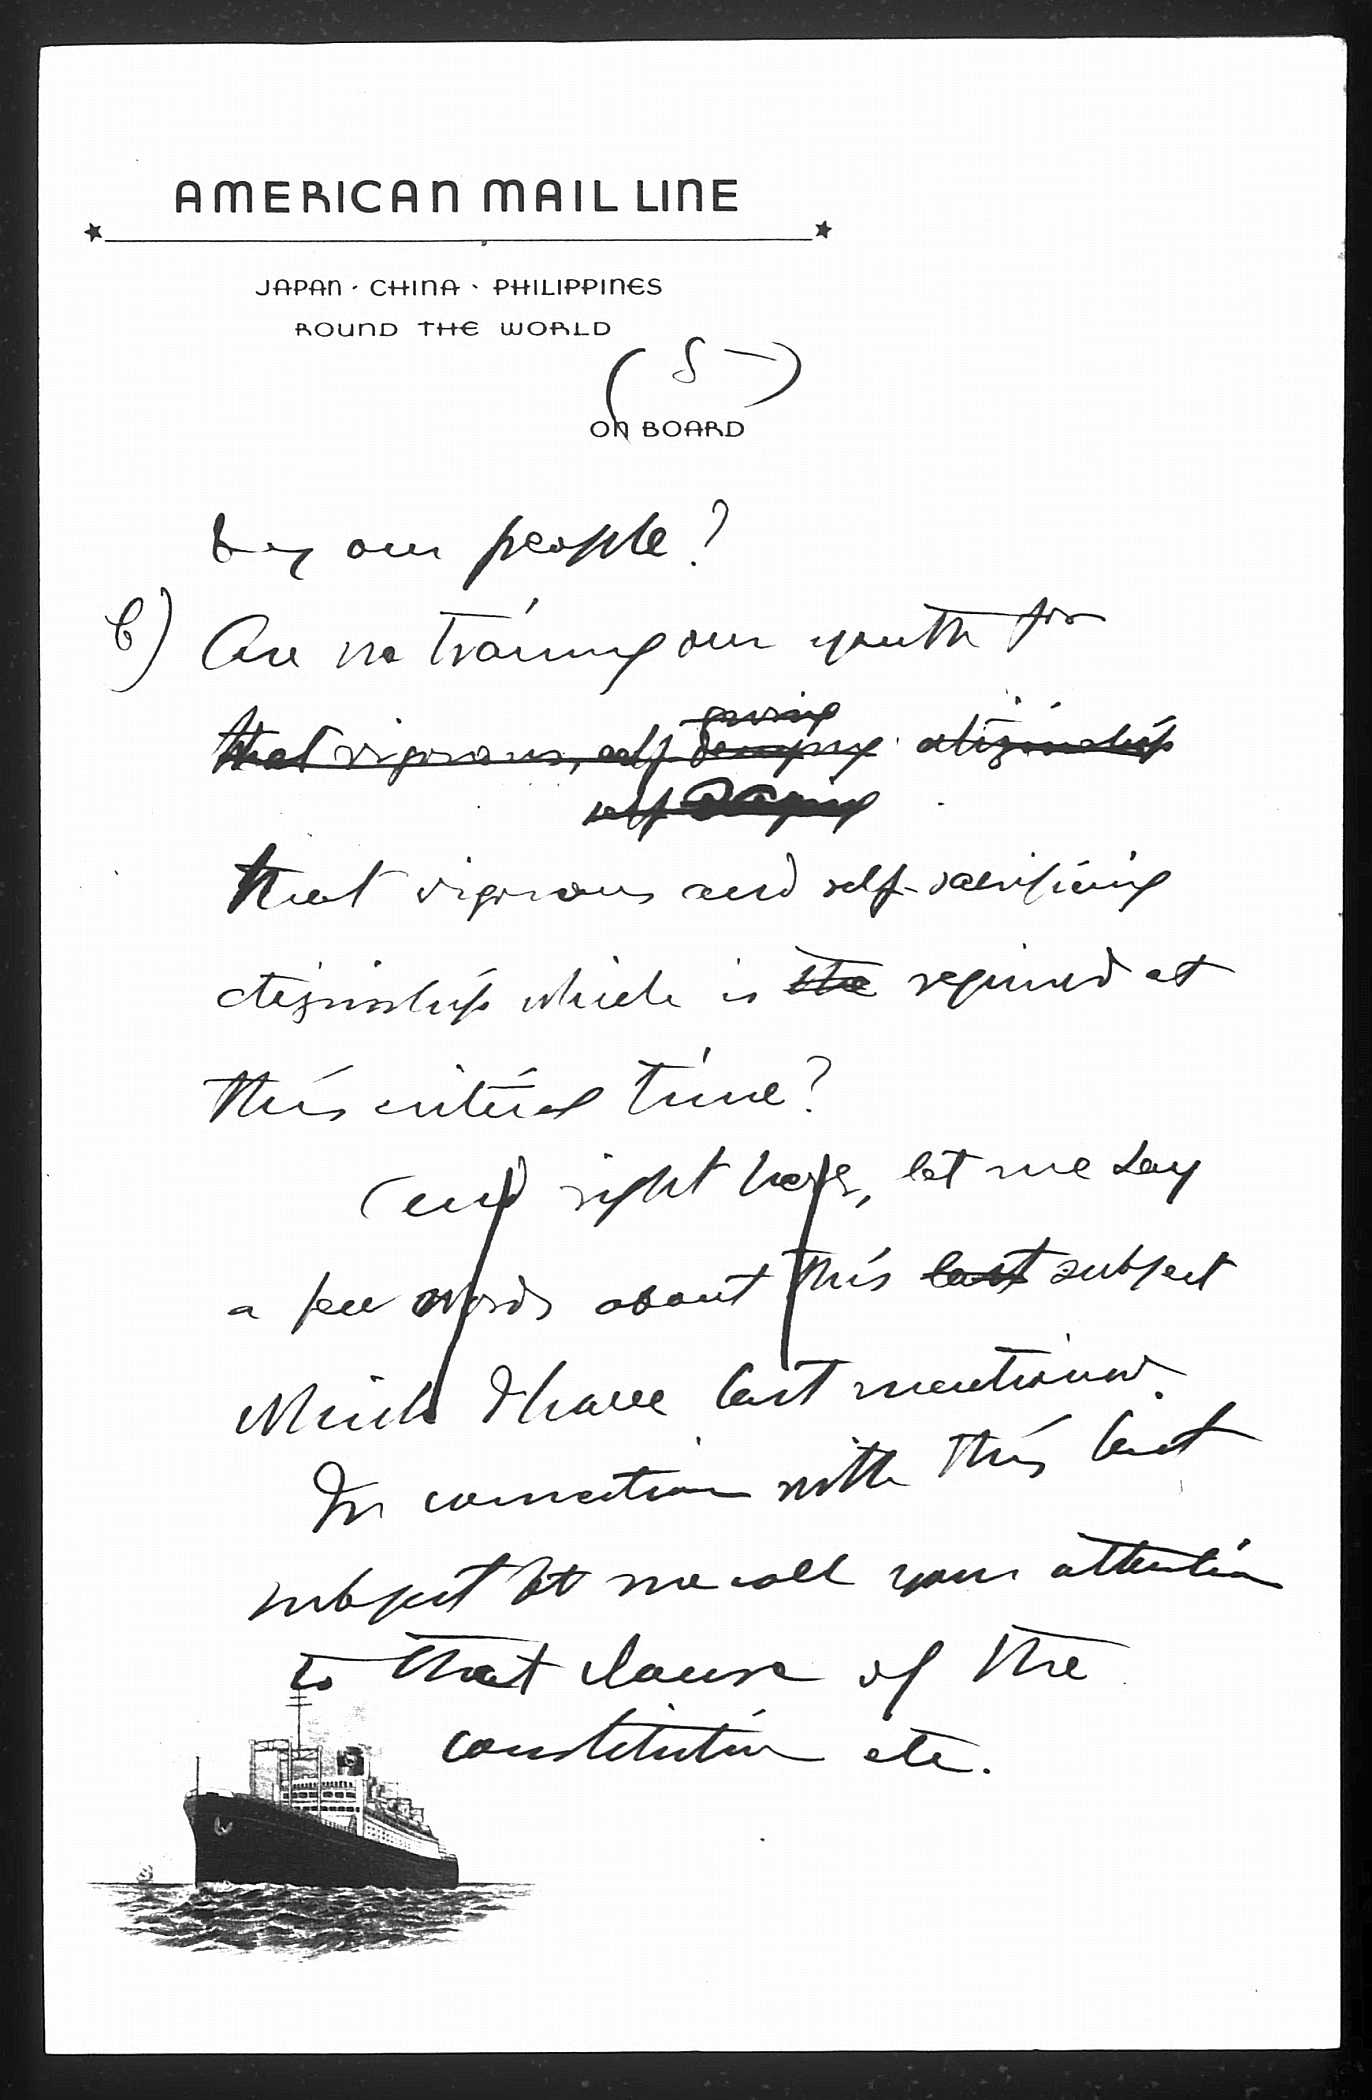 AMERICAN MAIL LINE
JAPAN · CHINA · PHILIPPINES
ROUND THE WORLD
(5-)
ON BOARD
by our people?
6) Are we training our youth for
giving
that vigorous, self-denying citizenship
self
that vigorous and self-sacrificing
citizenship which is the required at
this critical time?
(and right here, let me say
a few words about this last subject
which I have last mentioned.
In connection with this last
subject let me call your attention
to that clause of the
constitution etc.